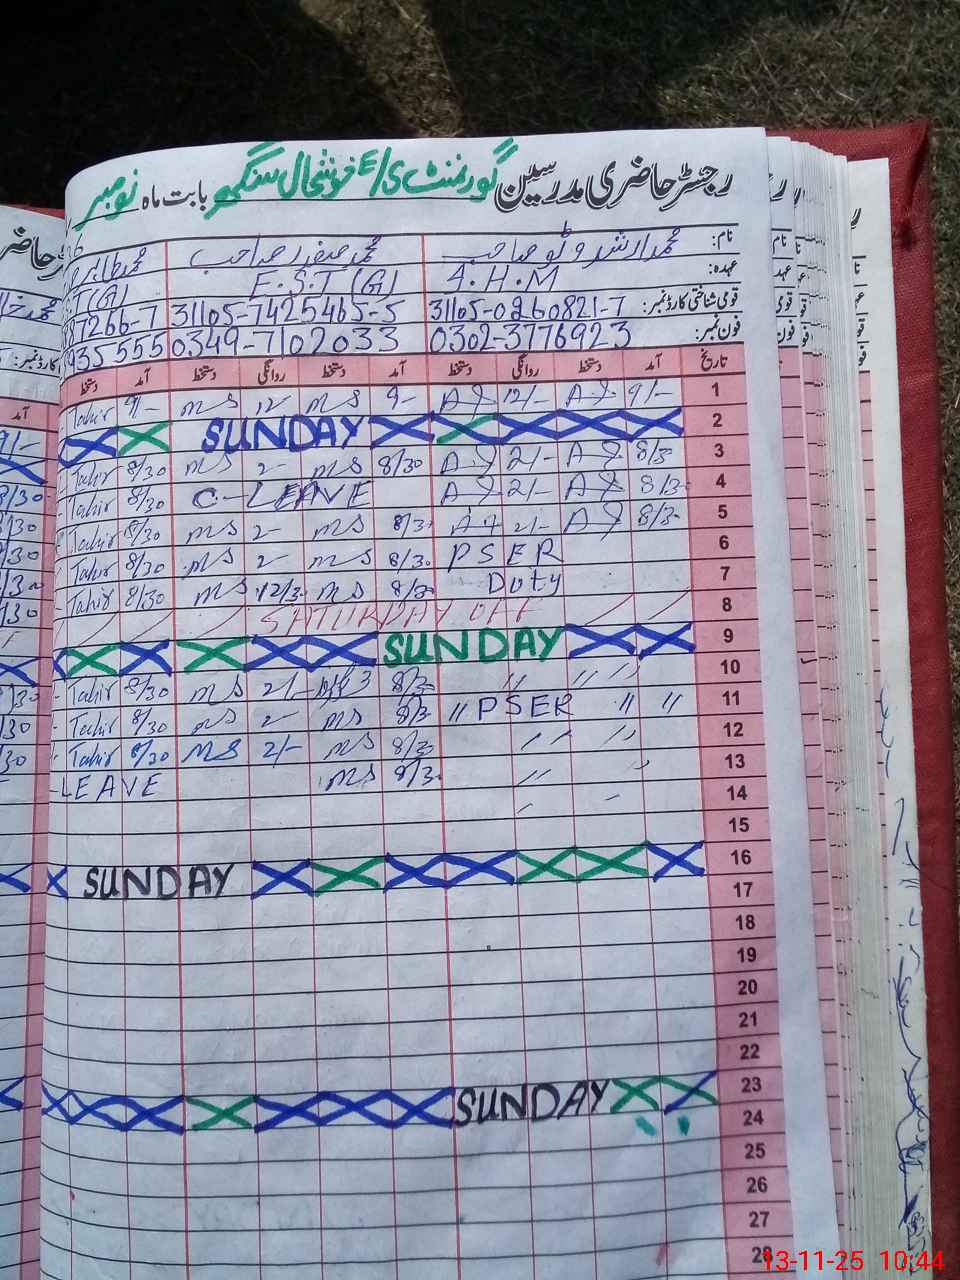 رجسٹر حاضری مدرسین گورنمنٹ E/S خوشحال سنگھ بابت ماہ نومبر
نام: محمد ارشد وٹو صاحب محمد صفدر صاحب محمد طاہر
عہدہ: A.H.M E.S.T (G) T(G)
قومی شناختی کارڈ نمبر: 31105-0260821-7 31105-7425465-5 87266-7
فون نمبر: 0302-3776923 0349-7102033 935555
تاریخ آمد دستخط روانگی دستخط آمد دستخط روانگی دستخط آمد دستخط
Tahir 9/- MS 12- MS 9- 12/- 9/- 1
SUNDAY 2
Tahir 8/30 MS 2- MS 8/30 2/- 8/30 3
Tahir 8/30 C-LEAVE 2/- 8/30 4
Tahir 8/30 MS 2- MS 8/30 2/- 8/30 5
Tahir 8/30 MS 2- MS 8/30 PSER 6
Tahir 8/30 MS 12/30 MS 8/30 Duty 7
SATURDAY OFF 8
SUNDAY 9
Tahir 8/30 MS 2/- 8/30 〃 〃 〃 10
Tahir 8/30 MS 2- MS 8/30 〃 PSER 〃 〃 11
Tahir 8/30 MS 2/- MS 8/30 〃 〃 12
LEAVE MS 8/30 〃 〃 13
14
15
SUNDAY 16
17
18
19
20
21
22
SUNDAY 23
24
25
26
27
28
13-11-25 10:44